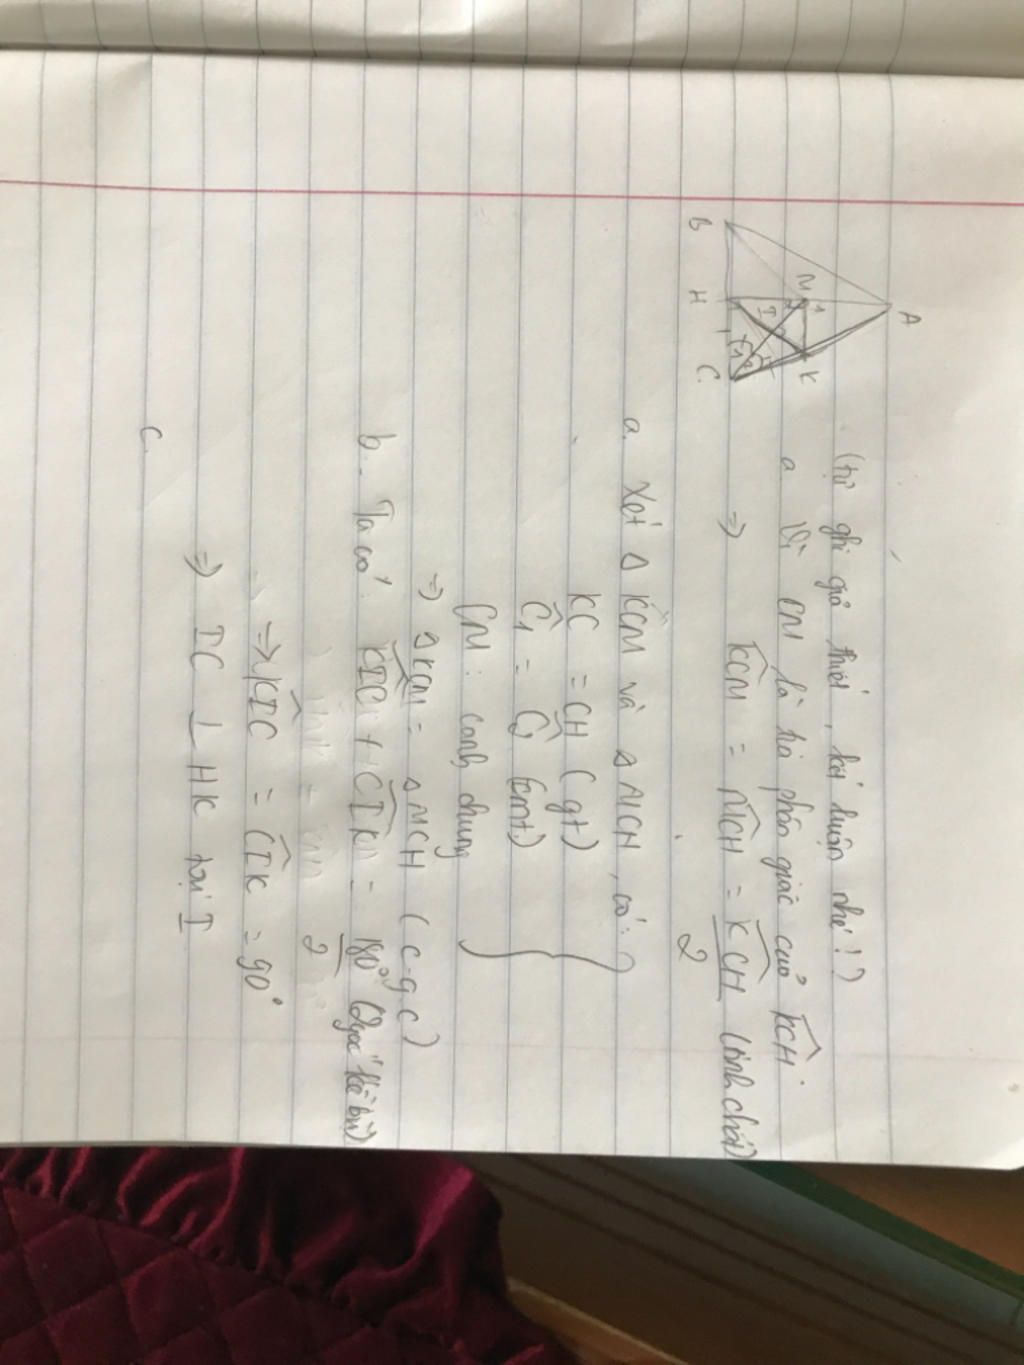 A
M 1
K
I
1 2
B H C
(tự ghi giả thiết, kết luận nhé!?)
a Vì CM là tia phân giác của KCH.
=> KCM = MCH = KCH/2 (tính chất)
a. Xét Δ KCM và Δ MCH, có:
KC = CH (gt)
C1 = C2 (cmt)
CM: cạnh chung
=> Δ KCM = Δ MCH (c.g.c)
b. Ta có: KIC + CIK = 180° (2 góc kề bù)
2
=> KIC = CIK = 90°
=> IC ⊥ HK tại I
c.